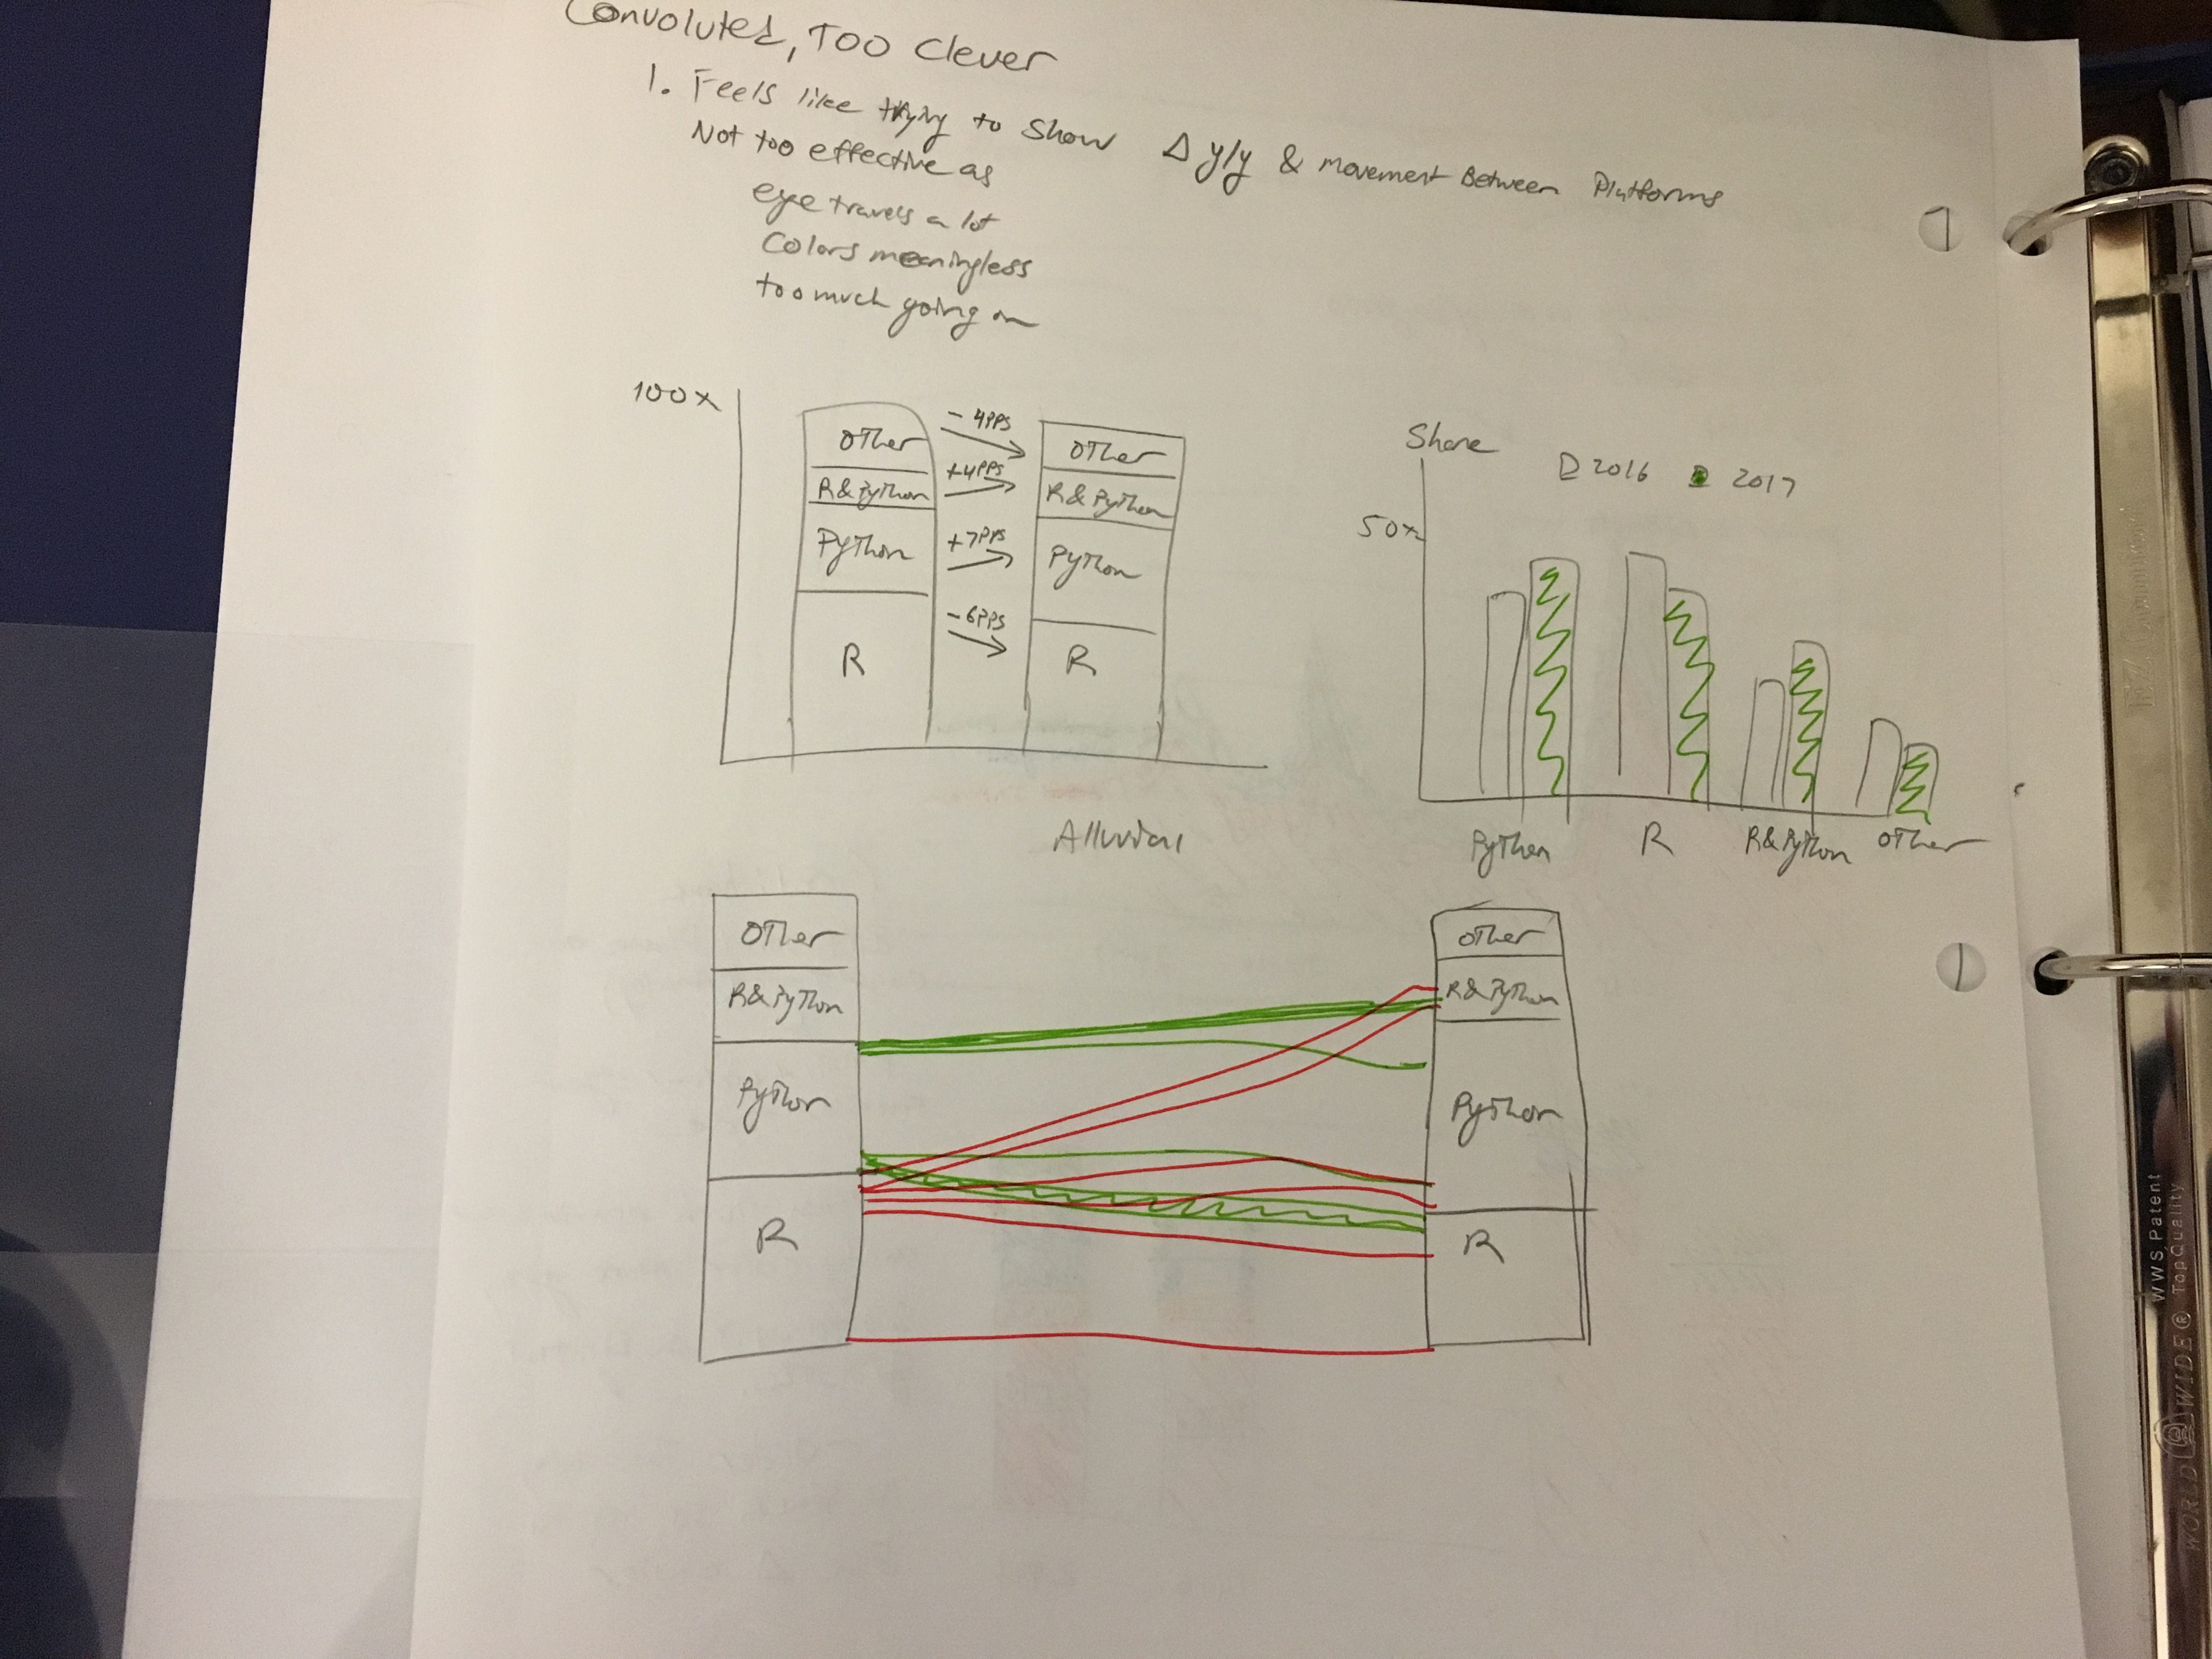 Convoluted, Too clever
1. Feels like trying to show Δ y/y & movement between Platforms
Not too effective as
eye travels a lot
Colors meaningless
too much going on
100%
Other
R&Python
Python
R
-4pps
+4pps
+7pps
-6pps
Other
R&Python
Python
R
Share
2016 2017
50%
Python R R&Python Other
Alluvial
Other
R&Python
Python
R
Other
R&Python
Python
R
WORLD WIDE®
WWS Patent
TopQuality